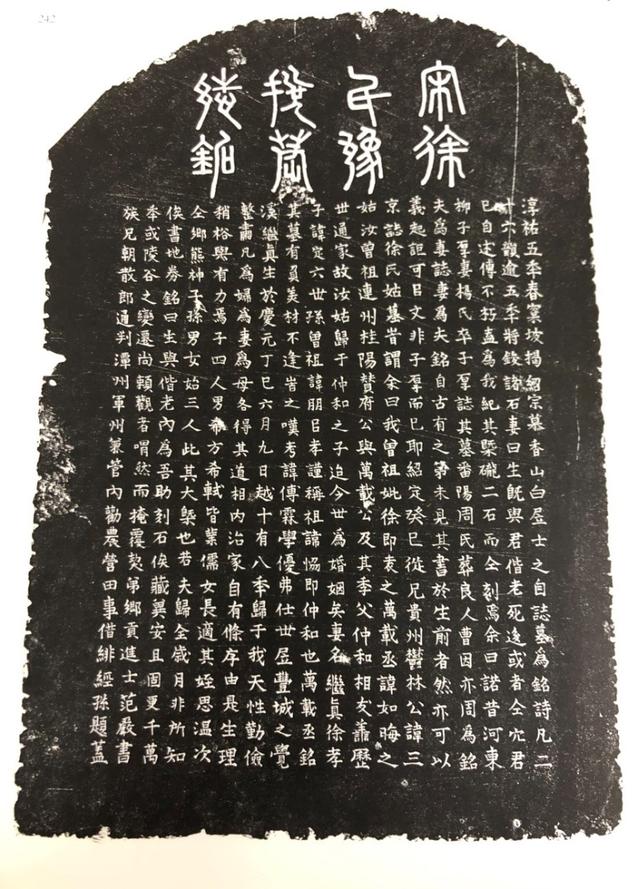 宋徐
氏豫
淳祐五年春棠坡揭紹宗慕香山白居士之自誌墓為銘詩凡二
十六韻逾五年將鋟諸石妻曰生旣與君偕老死逢或者仝穴君
已自述傳不朽盍為我紀其槩礲二石而仝刻焉余曰諾昔河東
柳子厚妻楊氏卒子厚誌其墓番陽周氏葬良人曹因亦周為銘
夫為妻誌妻為夫銘自古有之第未見其書於生前者然亦可以
義起詎可曰文非子厚而已耶紹定癸巳從兄貴州鬱林公諱三
京誌徐氏姑墓甞謂余曰我曾祖妣徐即衷之萬載丞諱如晦之
姑汝曾祖連州桂陽贊府公與萬載公及其季父仲和相友善歷
世通家故汝姑歸于仲和之子迨今世為婚姻矣妻名繼真徐孝
子諱定六世孫曾祖諱朋臣孝謹稱祖諱協即仲和也萬載丞銘
其墓有負美材不逢旹之嘆考諱傅霖學優弗仕世居豐城之覺
溪繼真生於慶元丁巳六月九日越十有八年歸于我天性勤儉
整肅凡為婦為妻為母各得其道相內治家自有條序由是生理
稍裕與有力焉子四人男希方希軾皆業儒女長適其姪恩溫次
仝鄉熊神子孫男女始三人此其大槩也若夫歸全歲月非所知
俟書地券銘曰生與偕老內為吾助刻石俟藏異安且固更千萬
年或陵谷之變遷尚賴觀者喟然而掩覆歟第鄉貢進士范嚴書
族兄朝散郎通判潭州軍州兼管內勸農營田事借緋經孫題蓋
242